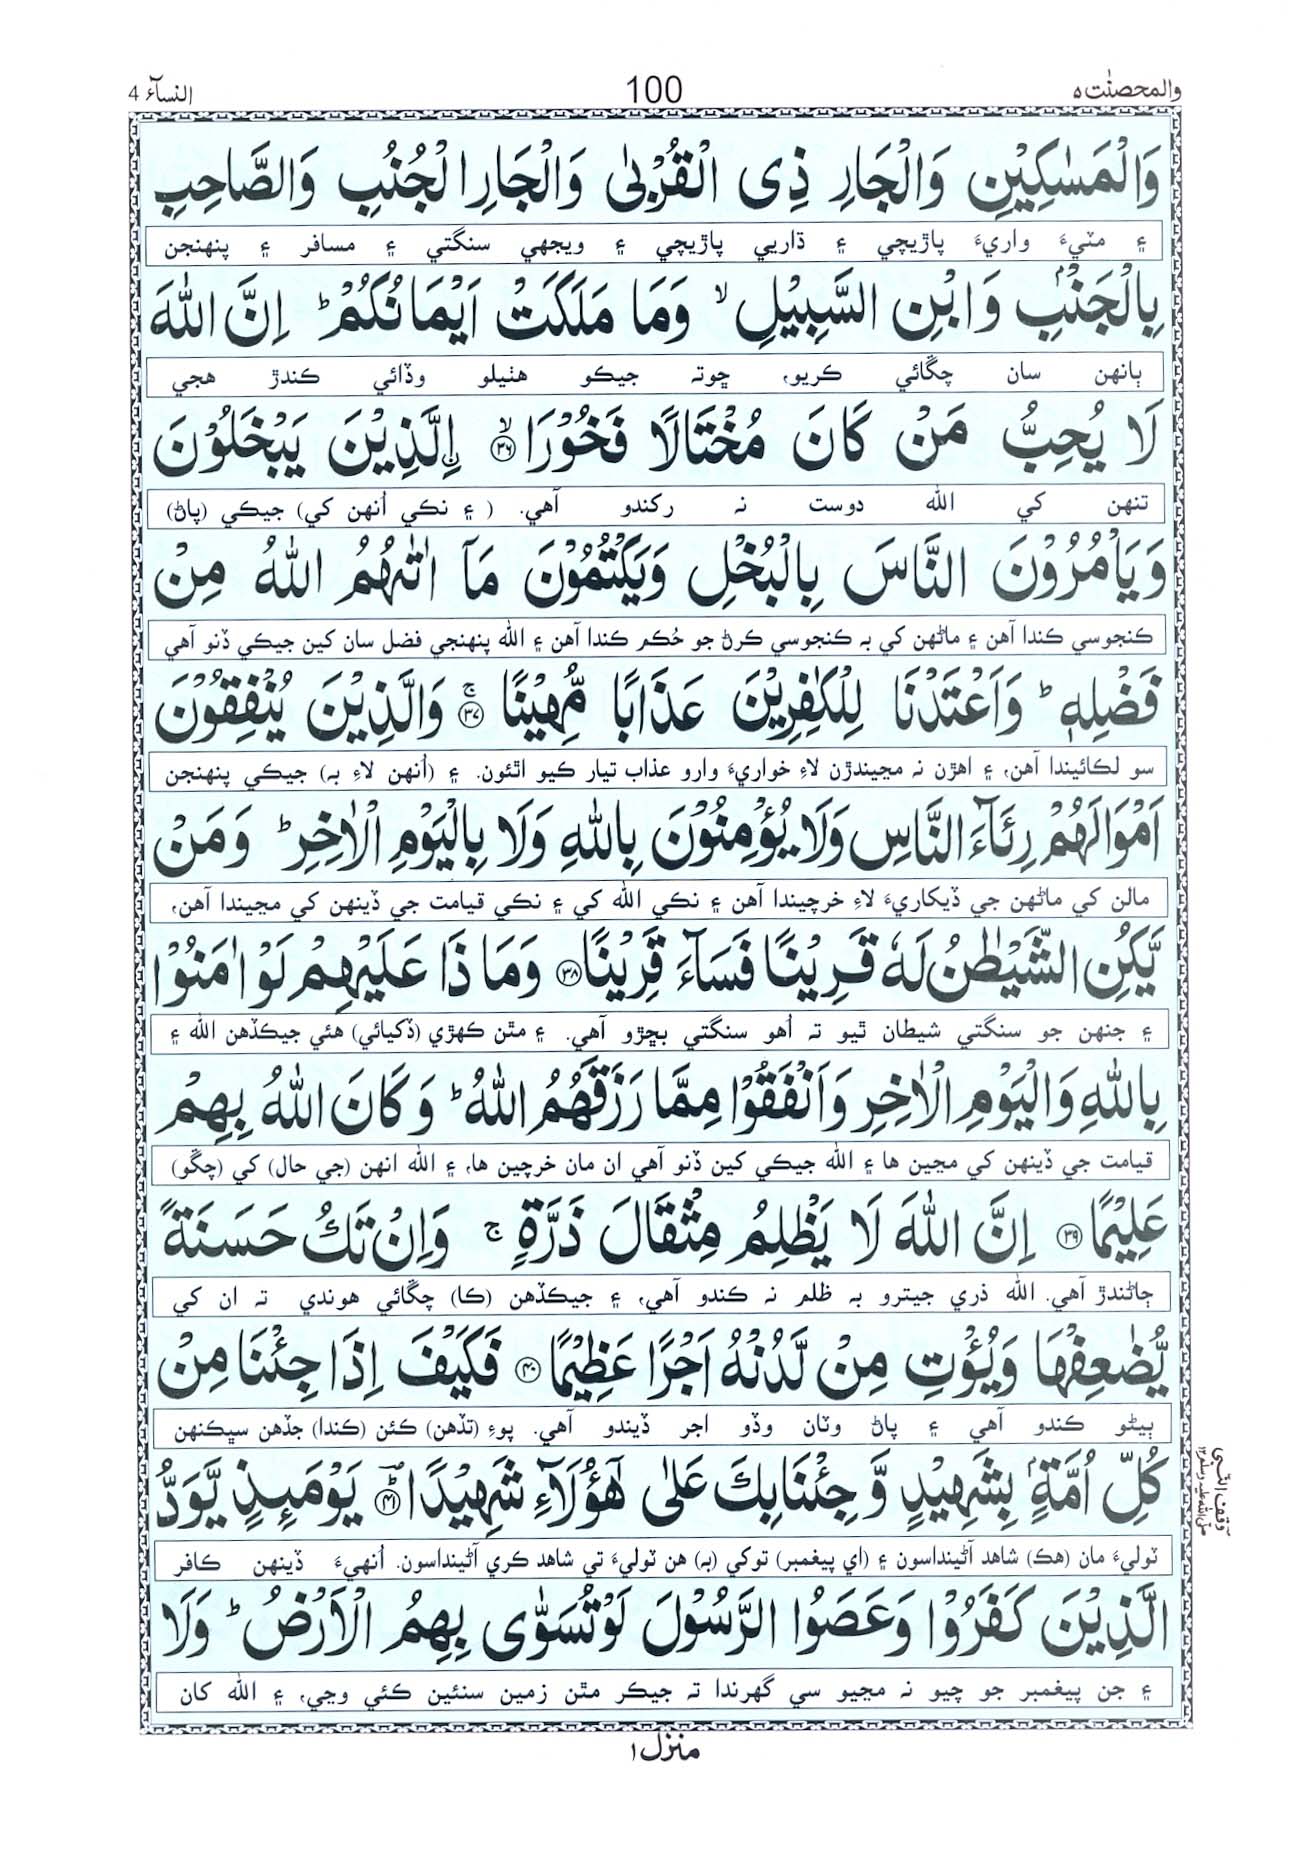 والمحصنٰت ٥
100
النسآء 4
وَالْمَسٰكِيْنِ وَالْجَارِ ذِى الْقُرْبٰى وَالْجَارِ الْجُنُبِ وَالصَّاحِبِ
۽ مٽيءَ واريءَ پاڙيچي ۽ ڌاريي پاڙيچي ۽ ويجهي سنگتي ۽ مسافر ۽ پنهنجن
بِالْجَنْۢبِ وَابْنِ السَّبِيْلِ ۙ وَمَا مَلَكَتْ اَيْمَانُكُمْ ؕ اِنَّ اللّٰهَ
ٻانهن سان چڱائي ڪريو، ڇوتہ جيڪو هٺيلو وڏائي ڪندڙ هجي
لَا يُحِبُّ مَنْ كَانَ مُخْتَالًا فَخُوْرَا ۙ‏﴿۳۶﴾ اۨلَّذِيْنَ يَبْخَلُوْنَ
تنهن کي الله دوست نہ رکندو آهي. ( ۽ نڪي اُنهن کي) جيڪي (پاڻ)
وَيَاْمُرُوْنَ النَّاسَ بِالْبُخْلِ وَيَكْتُمُوْنَ مَاۤ اٰتٰٮهُمُ اللّٰهُ مِنْ
ڪنجوسي ڪندا آهن ۽ ماڻهن کي بہ ڪنجوسي ڪرڻ جو حُڪم ڪندا آهن ۽ الله پنهنجي فضل سان کين جيڪي ڏنو آهي
فَضْلِهٖ ؕ وَاَعْتَدْنَا لِلْكٰفِرِيْنَ عَذَابًا مُّهِيْنًا ۚ‏﴿۳۷﴾ وَالَّذِيْنَ يُنْفِقُوْنَ
سو لڪائيندا آهن، ۽ اهڙن نہ مڃيندڙن لاءِ خواريءَ وارو عذاب تيار ڪيو اٿئون. ۽ (اُنهن لاءِ بہ) جيڪي پنهنجن
اَمْوَالَهُمْ رِئَآءَ النَّاسِ وَلَا يُؤْمِنُوْنَ بِاللّٰهِ وَلَا بِالْيَوْمِ الْاٰخِرِ ؕ وَمَنْ
مالن کي ماڻهن جي ڏيکاريءَ لاءِ خرچيندا آهن ۽ نڪي الله کي ۽ نڪي قيامت جي ڏينهن کي مڃيندا آهن،
يَّكُنِ الشَّيْطٰنُ لَهٗ قَرِيْنًا فَسَآءَ قَرِيْنًا ﴿۳۸﴾ وَمَا ذَا عَلَيْهِمْ لَوْ اٰمَنُوْا
۽ جنهن جو سنگتي شيطان ٿيو تہ اُهو سنگتي بڇڙو آهي. ۽ مٿن ڪهڙي (ڏکيائي) هئي جيڪڏهن الله ۽
بِاللّٰهِ وَالْيَوْمِ الْاٰخِرِ وَاَنْفَقُوْا مِمَّا رَزَقَهُمُ اللّٰهُ ؕ وَكَانَ اللّٰهُ بِهِمْ
قيامت جي ڏينهن کي مڃين ها ۽ الله جيڪي کين ڏنو آهي ان مان خرچين ها، ۽ الله انهن (جي حال) کي (چڱو)
عَلِيْمًا ﴿۳۹﴾ اِنَّ اللّٰهَ لَا يَظْلِمُ مِثْقَالَ ذَرَّةٍ ۚ وَاِنْ تَكُ حَسَنَةً
ڄاڻندڙ آهي. الله ذري جيترو بہ ظلم نہ ڪندو آهي، ۽ جيڪڏهن (ڪا) چڱائي هوندي تہ ان کي
يُّضٰعِفْهَا وَيُؤْتِ مِنْ لَّدُنْهُ اَجْرًا عَظِيْمًا ﴿۴۰﴾ فَكَيْفَ اِذَا جِئْنَا مِنْ
ٻيڻو ڪندو آهي ۽ پاڻ وٽان وڏو اجر ڏيندو آهي. پوءِ (تڏهن) ڪئن (ڪندا) جڏهن سڀڪنهن
كُلِّ اُمَّةٍۢ بِشَهِيْدٍ وَّجِئْنَا بِكَ عَلٰى هٰٓؤُلَآءِ شَهِيْدًا ؕ ﴿۴۱﴾ يَوْمَئِذٍ يَّوَدُّ
وقف النبى صلى الله عليه وسلم ۱۲
ٽوليءَ مان (هڪ) شاهد آڻينداسون ۽ (اي پيغمبر) توکي (بہ) هن ٽوليءَ تي شاهد ڪري آڻينداسون. اُنهيءَ ڏينهن ڪافر
الَّذِيْنَ كَفَرُوْا وَعَصَوُا الرَّسُوْلَ لَوْ تُسَوّٰى بِهِمُ الْاَرْضُ ؕ وَلَا
۽ جن پيغمبر جو چيو نہ مڃيو سي گهرندا تہ جيڪر مٿن زمين سنئين ڪئي وڃي، ۽ الله کان
منزل ۱